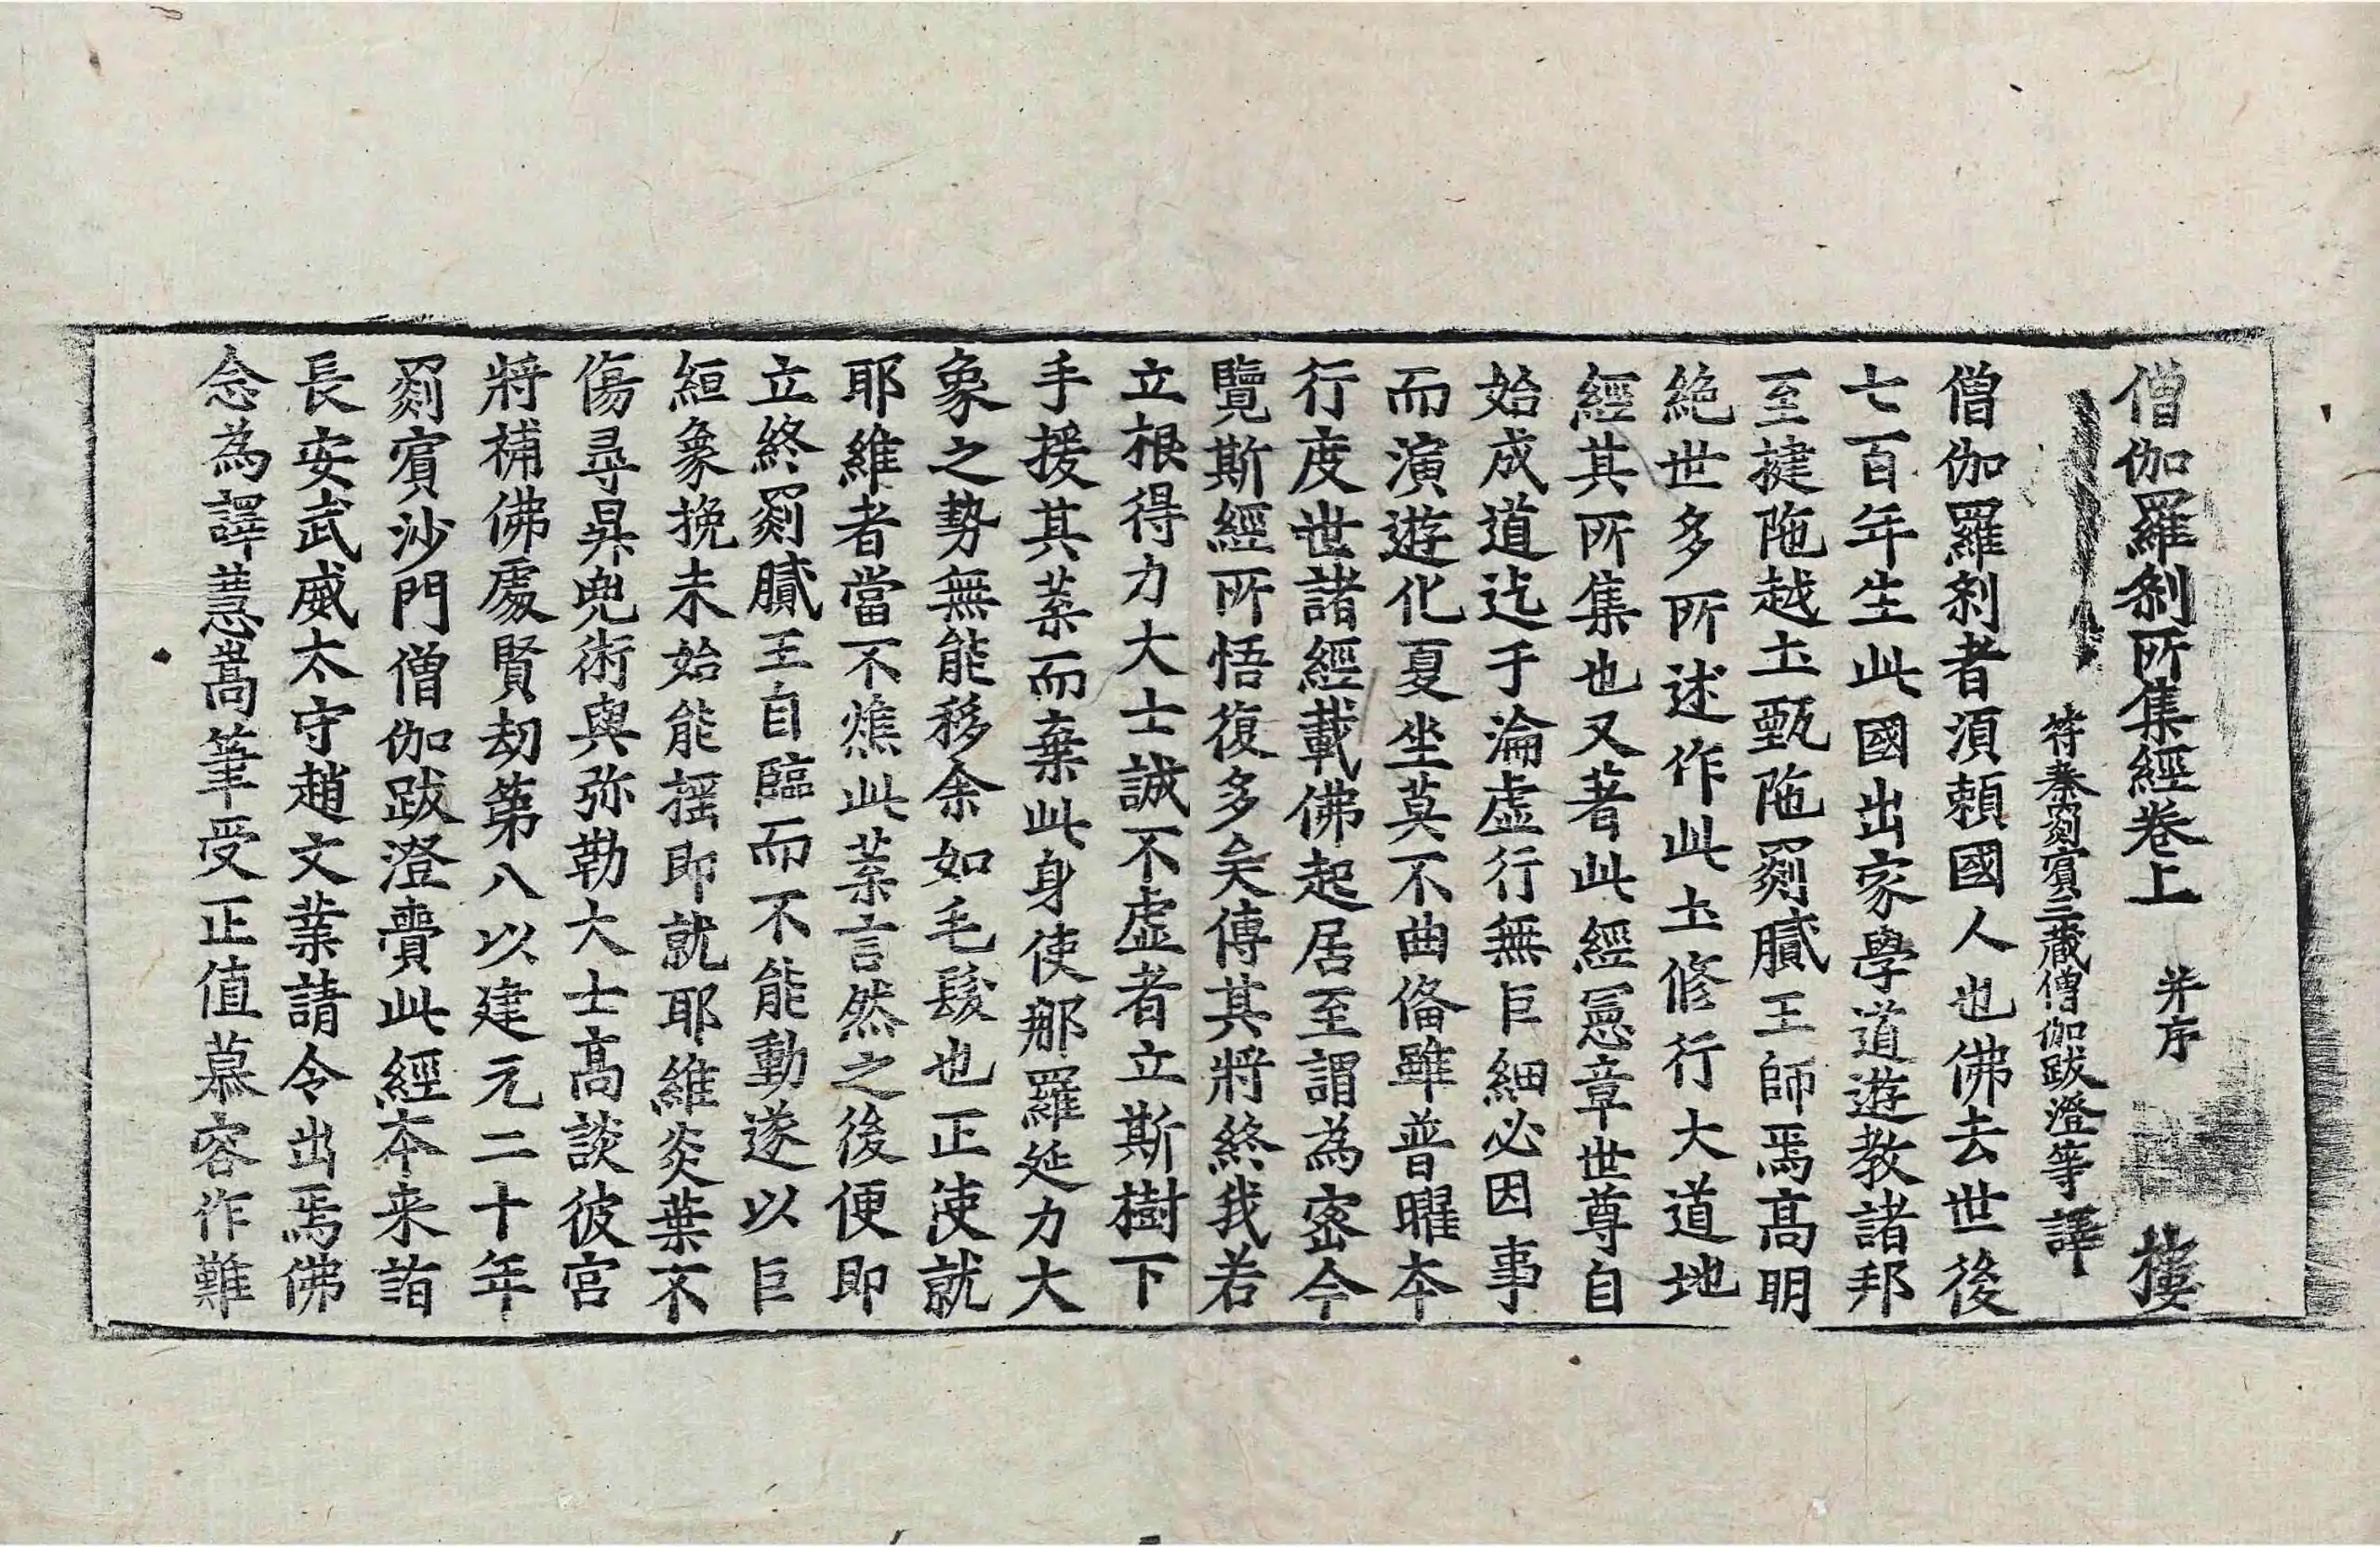 僧伽羅刹所集經卷上 并序 樓
符秦罽賓三藏僧伽跋澄等譯
僧伽羅刹者湏頼國人也佛去世後
七百年生此國出家學道遊教諸邦
至揵陁越土甄陁罽膩王師焉髙明
絶世多所述作此土修行大道地
經其所集也又著此經憲章世尊自
始成道迄于淪虛行無巨細必因事
而演遊化夏坐莫不曲俻雖普曜本
行度世諸經載佛起居至謂為密今
覽斯經所悟復多矣傳其將終我若
立根得力大士誠不虛者立斯樹下
手援其葉而棄此身使那羅延力大
象之勢無能移余如毛髮也正使就
耶維者當不燋此葉言然之後便即
立終罽膩王自臨而不能動遂以巨
絙象挽未始能揺即就耶維炎葉不
傷尋昇兜術與弥勒大士髙談彼宫
將補佛處賢劫第八以建元二十年
罽賓沙門僧伽跋澄賷此經本来詣
長安武威太守趙文業請令出焉佛
念為譯慧嵩筆受正值慕容作難